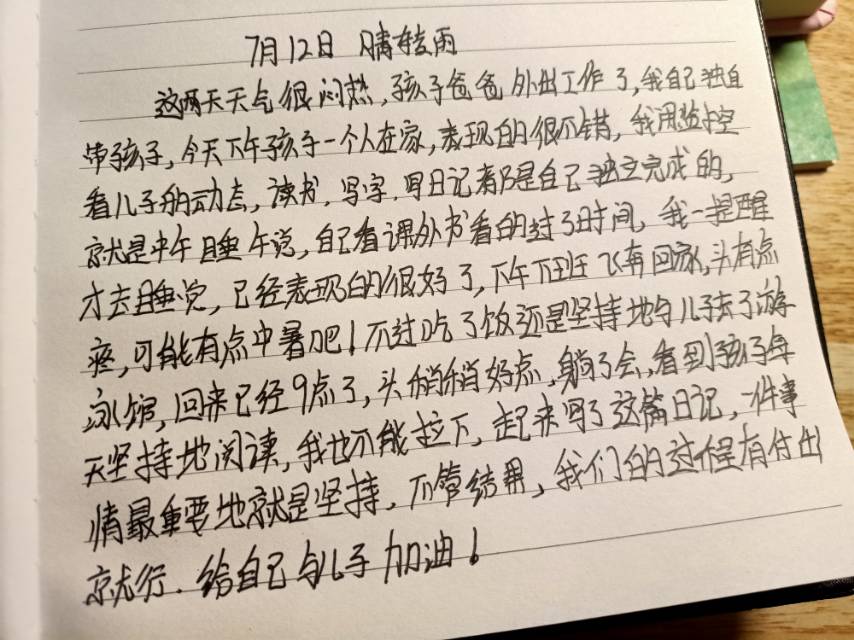 7月12日 晴转雨
这两天天气很闷热,孩子爸爸外出工作了,我自己独自
带孩子,今天下午孩子一个人在家,表现的很不错,我用监控
看儿子的动态,读书,写字,写日记都是自己独立完成的,
就是中午睡午觉,自己看课外书看的过了时间,我一提醒
才去睡觉,已经表现的很好了,下午下班飞奔回家,头有点
疼,可能有点中暑吧!不过吃了饭还是坚持地与儿子去了游
泳馆,回来已经9点了,头稍稍好点,躺了会,看到孩子每
天坚持地阅读,我也不能拉下,起来写了这篇日记,一件事
情最重要地就是坚持,不管结果,我们的过程有付出
就行.给自己与儿子加油!